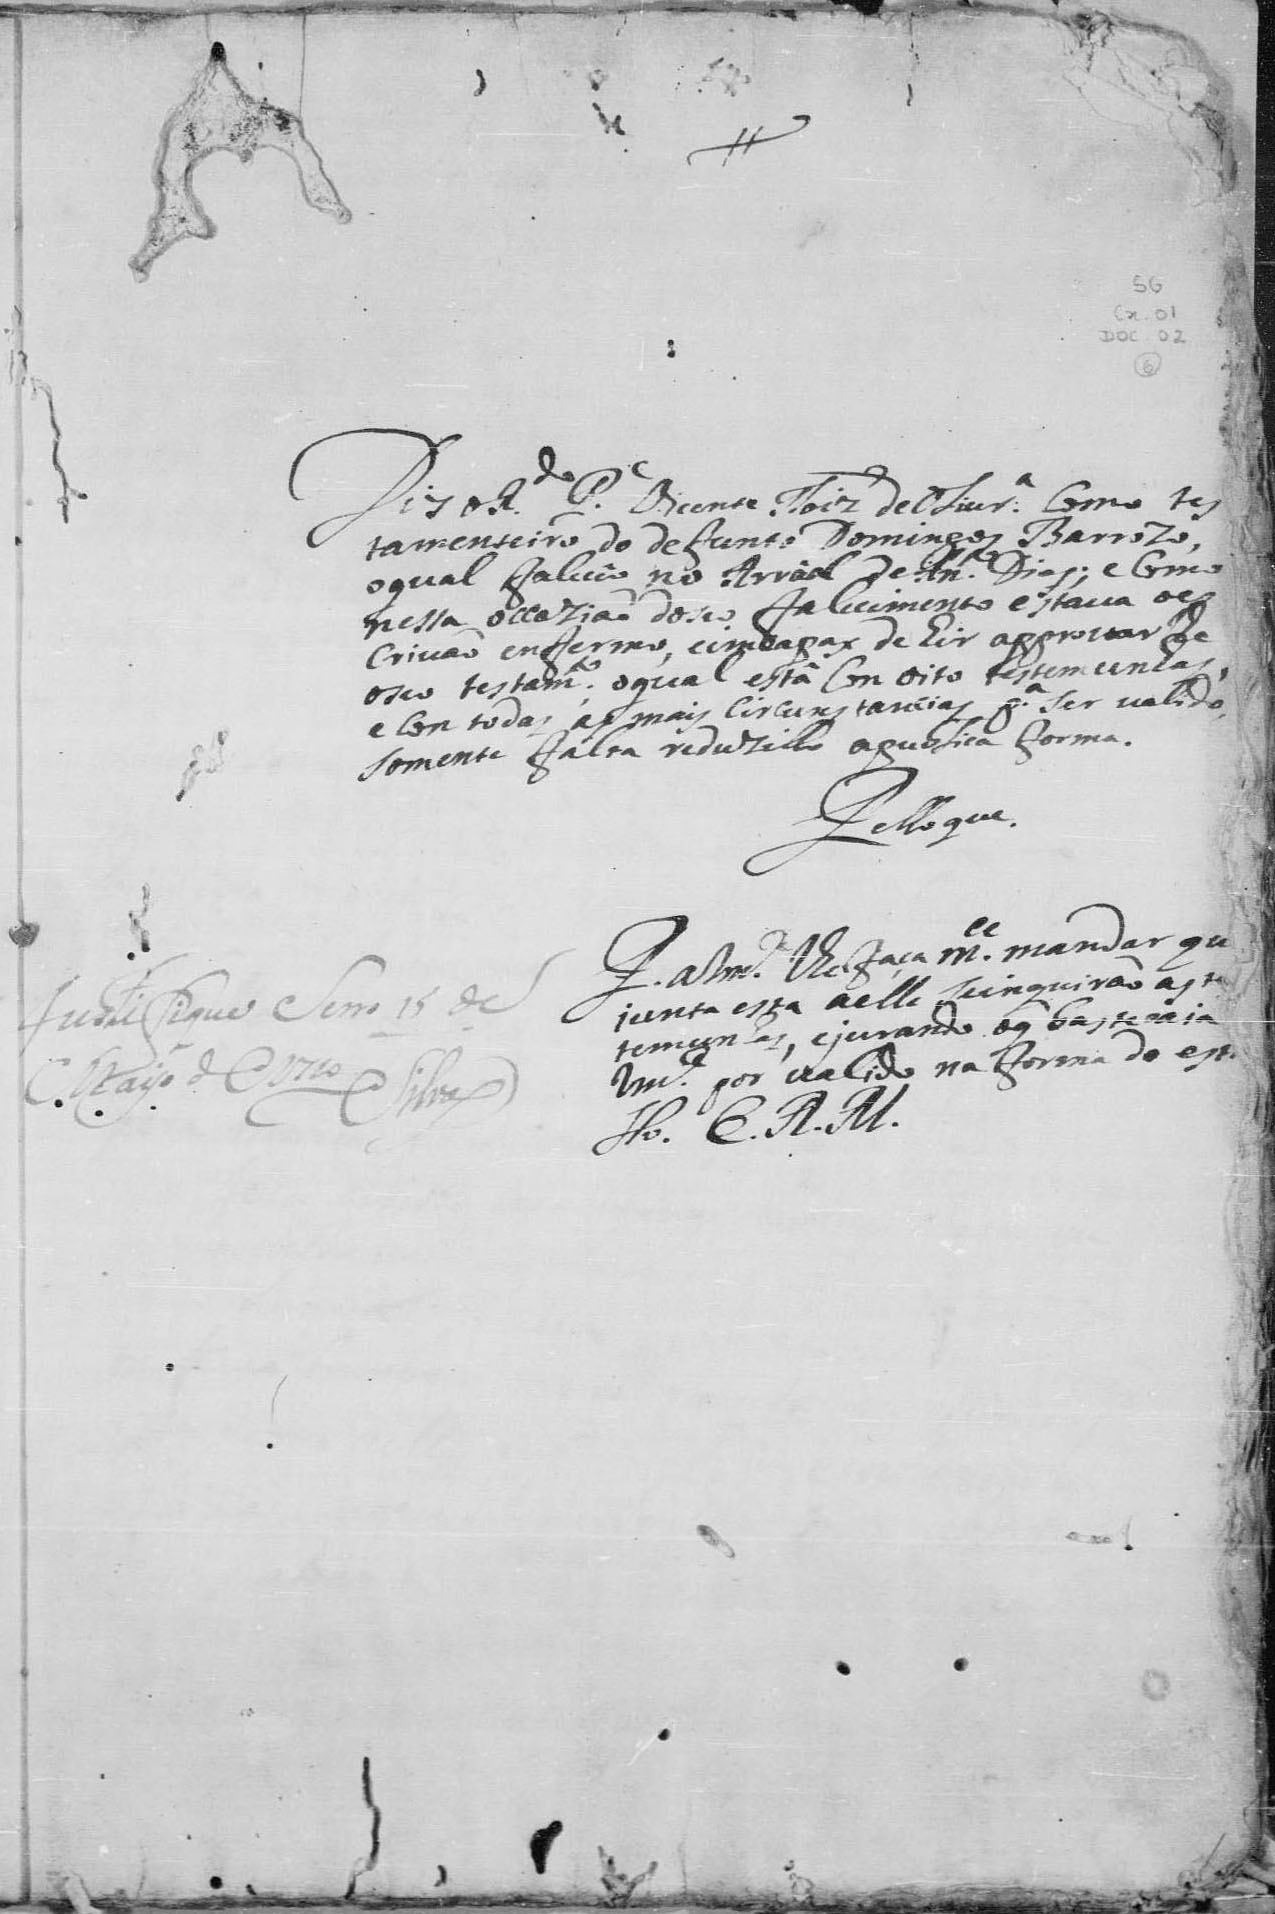 56
Cx. 01
DOC. 02
6
Dis o R.do P.e Vicente Roiz de Oliur.a Como tes
tamenteiro do defunto Domingos Barrozo,
oqual faleceo no Arraial de An.to Dias; e Como
nessa occaziaõ doseo falecimento estaua oes
criuaõ enfermo, eimcapax de hir approuar lhe
oseo testam.to oqual està Con oito testemunhas,
e Con todas as mais Circunstancias p.a ser ualido,
somente falta reduzillo apublica forma.
Pello que.
P. aVm.ce lhe faça m.ce mandar que
junta esta aelle seinquiraõ as tes
temunhas, ejurando oq baste aia
Vm.ce por ualido na forma do est.
llo. E. R. M.
Justifique Serro 15 de
Mayo de
Silva